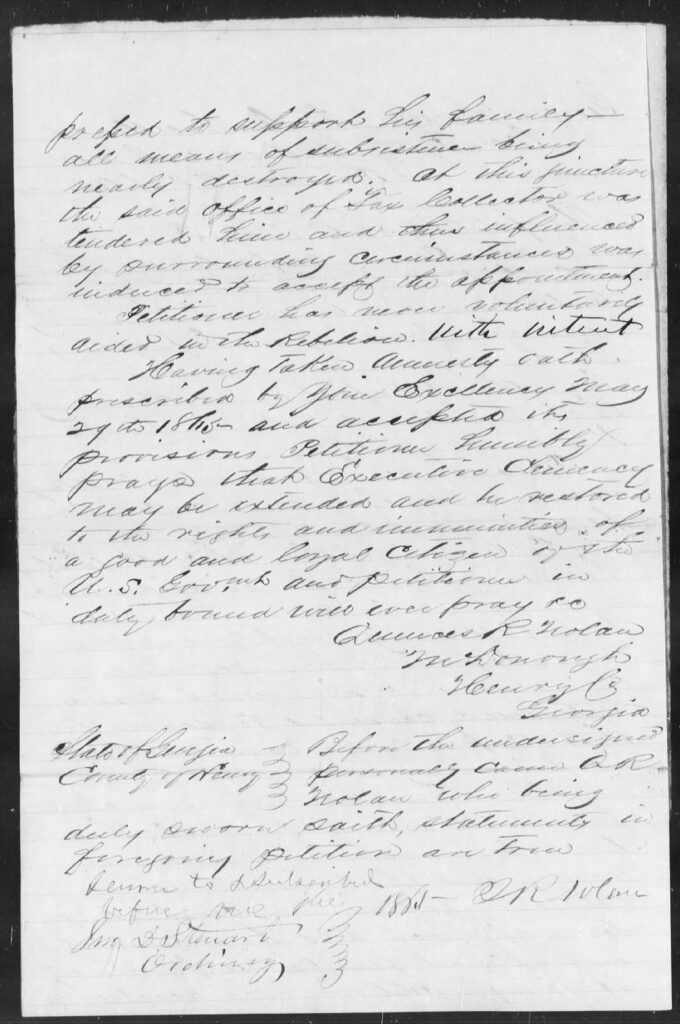 pressed to support his family—
all means of subsistence being
nearly destroyed. At this juncture
the said office of Tax Collector was
tendered him and thus influenced
by surrounding circumstances was
induced to accept the appointment.
Petitioner has never voluntarily
aided in the Rebelion. With intent
Having taken Amnesty oath
prescribed by Your Excellency May
29th 1865 and accepted its
provisions Petitioner humbly
prays that Executive Clemency
may be extended and he restored
to the rights and immunities of
a good and loyal Citizen of the
U.S. Govmt and petitioner in
duty bound will ever pray &c
Quinces R Nolan
McDonough
Henry Co
Georgia
State of Georgia Before the undersigned
County of Henry personally came Q R
Nolan who being
duly sworn saith, statements in
foregoing petition are true
Sworn to & Subscribed
before me the 1865 Q R Nolan
Jno D Stewart
Ordinary